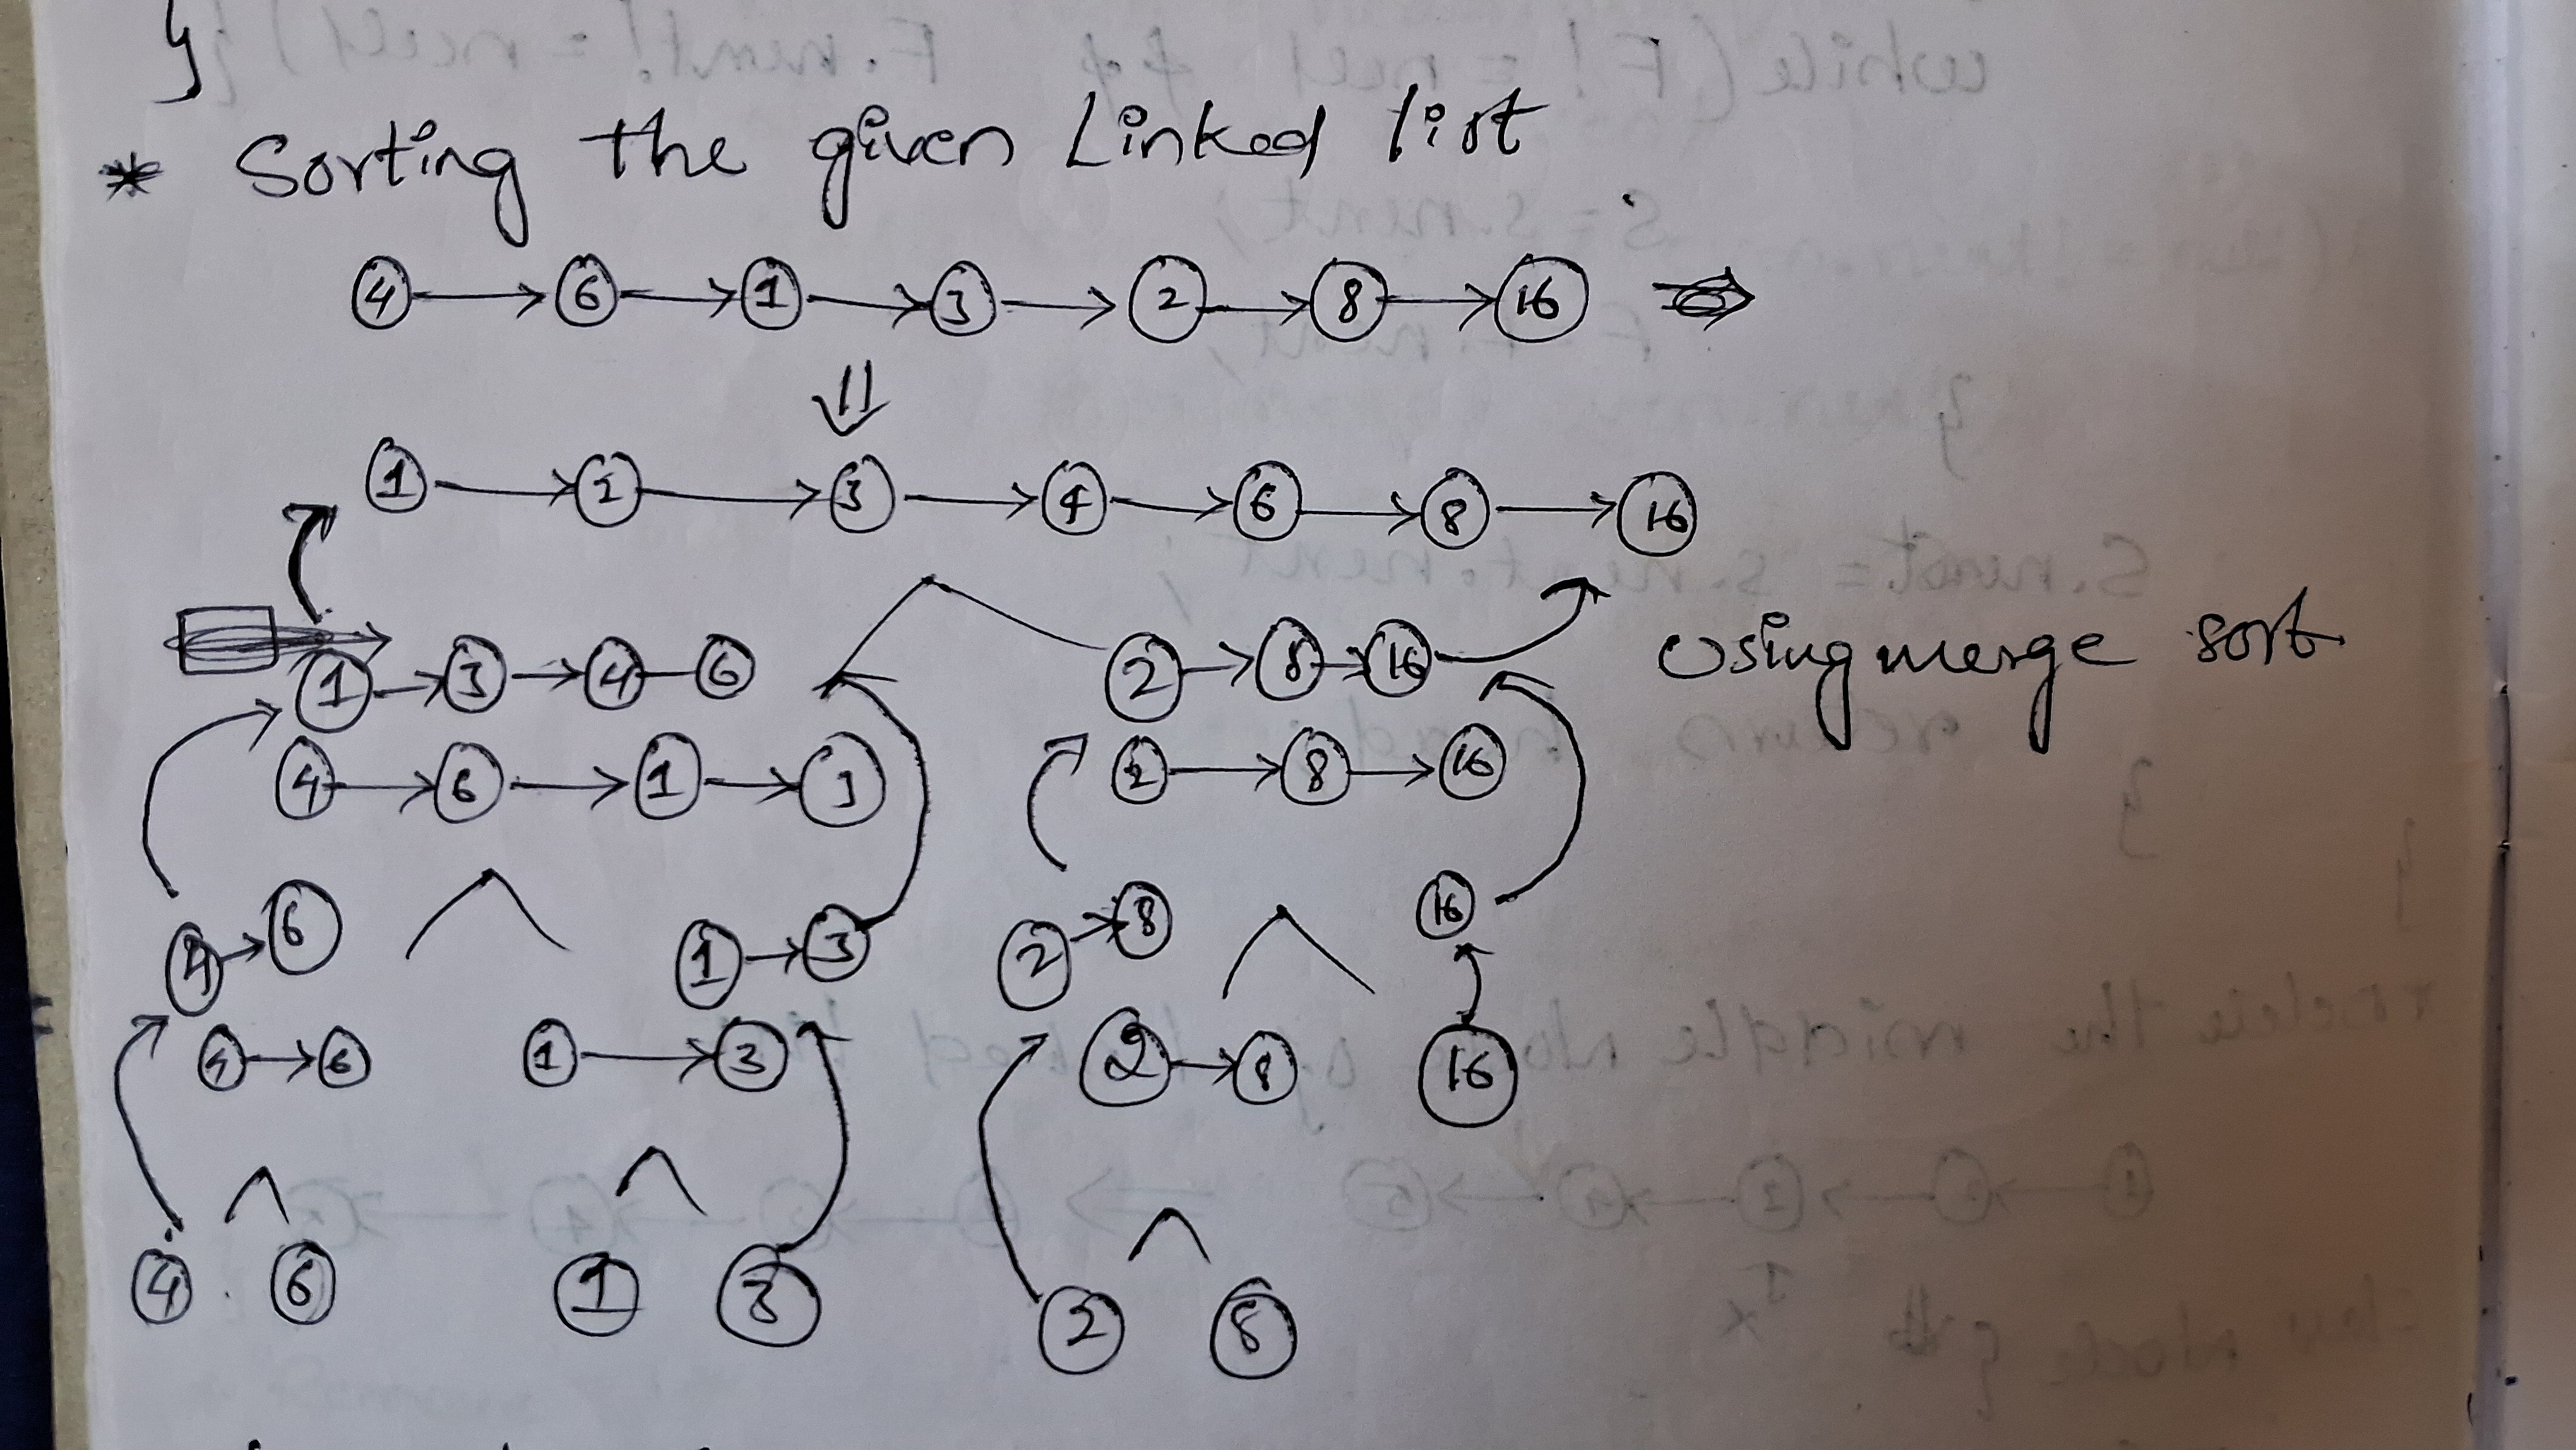 }
* Sorting the given Linked list
4 → 6 → 1 → 3 → 2 → 8 → 16
1 → 2 → 3 → 4 → 6 → 8 → 16
1 → 3 → 4 — 6 2 → 8 → 16 Using merge sort
4 → 6 → 1 → 3 2 → 8 → 16
4 → 6 1 → 3 2 → 8 16
4 → 6 1 → 3 2 → 8 16
4 6 1 3 2 8